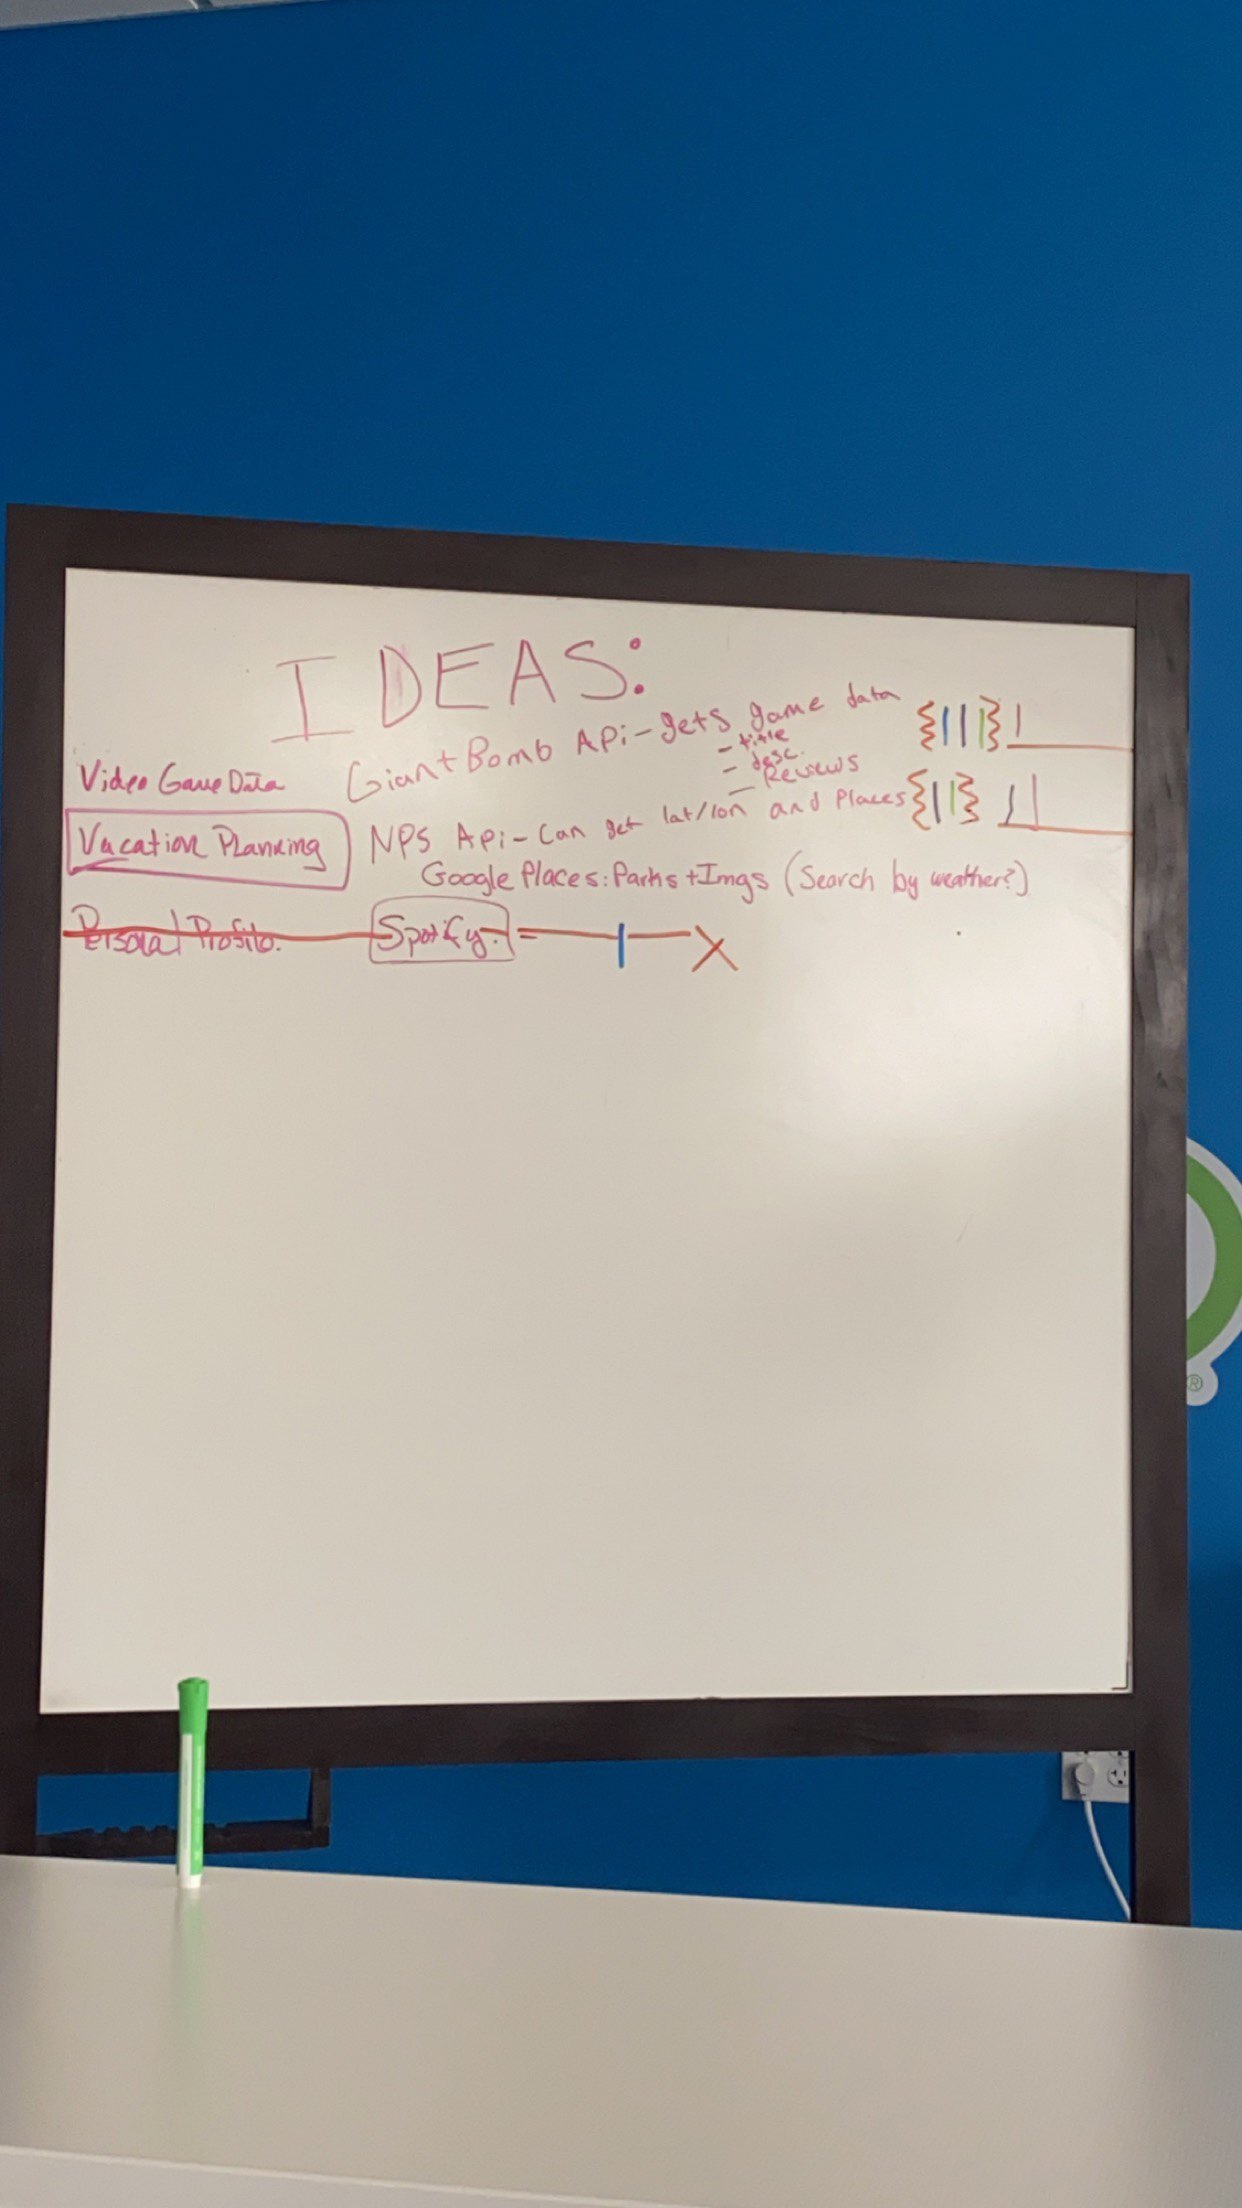 IDEAS:
Video Game Data GiantBomb APi - gets game data
- title
- desc.
- Reviews
Vacation Planning NPS APi - Can get lat/lon and Places
Google Places: Parks + Imgs (Search by weather?)
Personal Profile. Spotify.
®